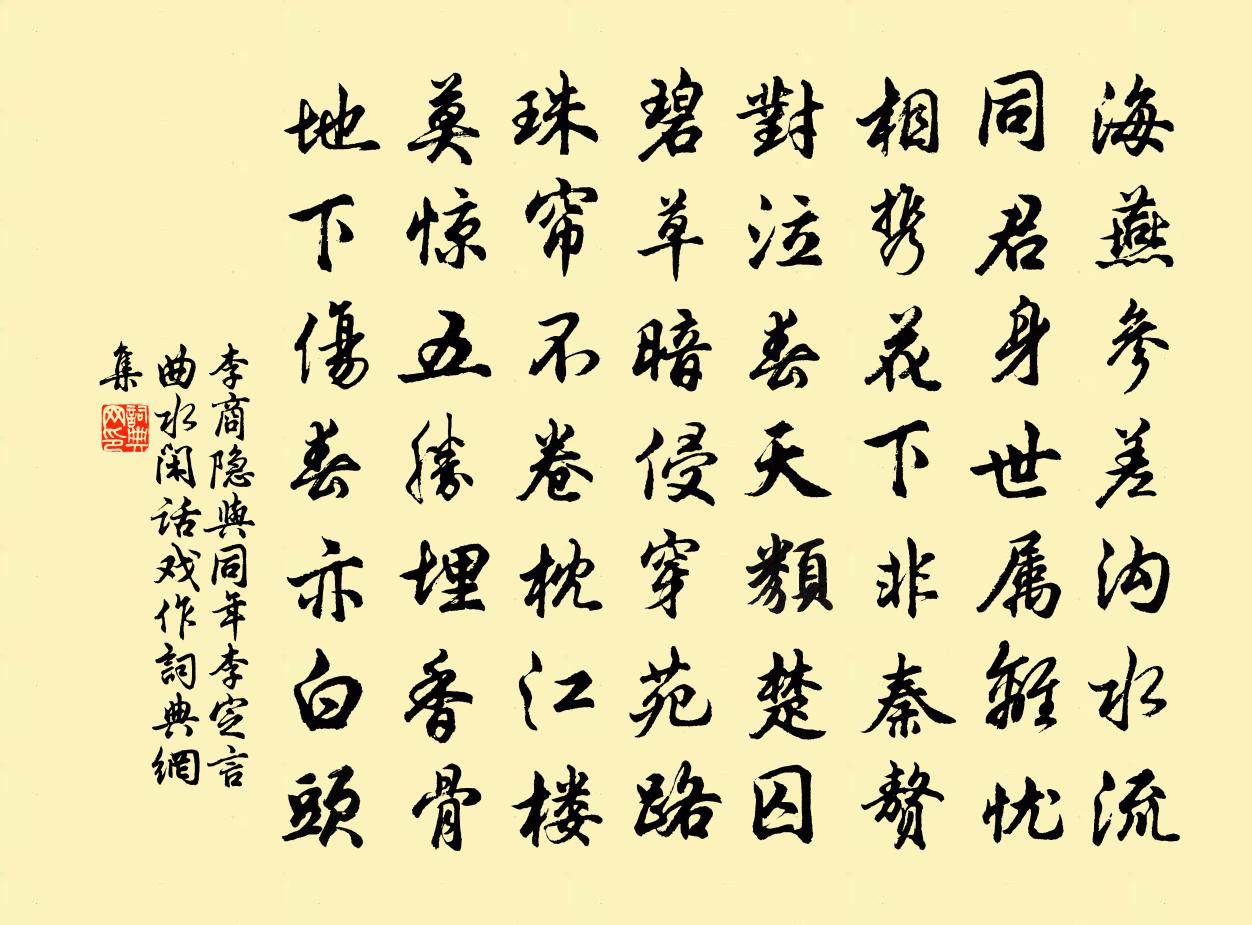 海燕参差沟水流
同君身世属離忧
相携花下非秦贅
對泣春天類楚囚
碧草暗侵穿苑路
珠帘不卷枕江楼
莫惊五勝埋香骨
地下傷春亦白頭
李商隐與同年李定言
曲水闲话戏作詞典網
集
詞典
网印